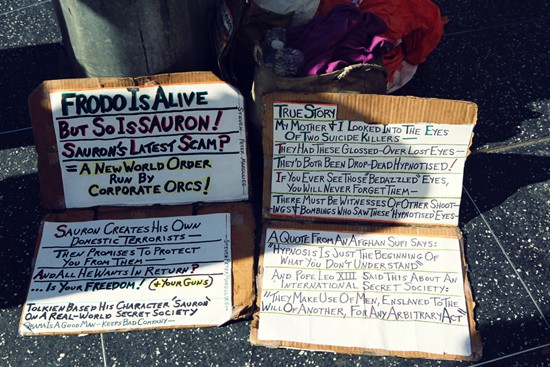 FRODO IS ALIVE
BUT SO IS SAURON!
SAURON'S LATEST SCAM?
= A NEW WORLD ORDER
RUN BY
CORPORATE ORCS!
TRUE STORY
MY MOTHER & I LOOKED INTO THE EYES
OF TWO SUICIDE KILLERS—
THEY HAD THESE GLOSSED-OVER LOST EYES—
THEY'D BOTH BEEN DROP-DEAD HYPNOTISED!
IF YOU EVER SEE THOSE BEDAZZLED EYES,
YOU WILL NEVER FORGET THEM—
THERE MUST BE WITNESSES OF OTHER SHOOT-
INGS & BOMBINGS WHO SAW THESE HYPNOTISED EYES—
SAURON CREATES HIS OWN
DOMESTIC TERRORISTS—
THEN PROMISES TO PROTECT
YOU FROM THEM—
AND ALL HE WANTS IN RETURN?
... IS YOUR FREEDOM! (& YOUR GUNS)
TOLKIEN BASED HIS CHARACTER 'SAURON'
ON A REAL-WORLD SECRET SOCIETY
OBAMA IS A GOOD MAN—KEEPS BAD COMPANY—
A QUOTE FROM AN AFGHAN SUFI SAYS:
"HYPNOSIS IS JUST THE BEGINNING OF
WHAT YOU DON'T UNDERSTAND"
AND POPE LEO XIII SAID THIS ABOUT AN
INTERNATIONAL SECRET SOCIETY:
"THEY MAKE USE OF MEN, ENSLAVED TO THE
WILL OF ANOTHER, FOR ANY ARBITRARY ACT"